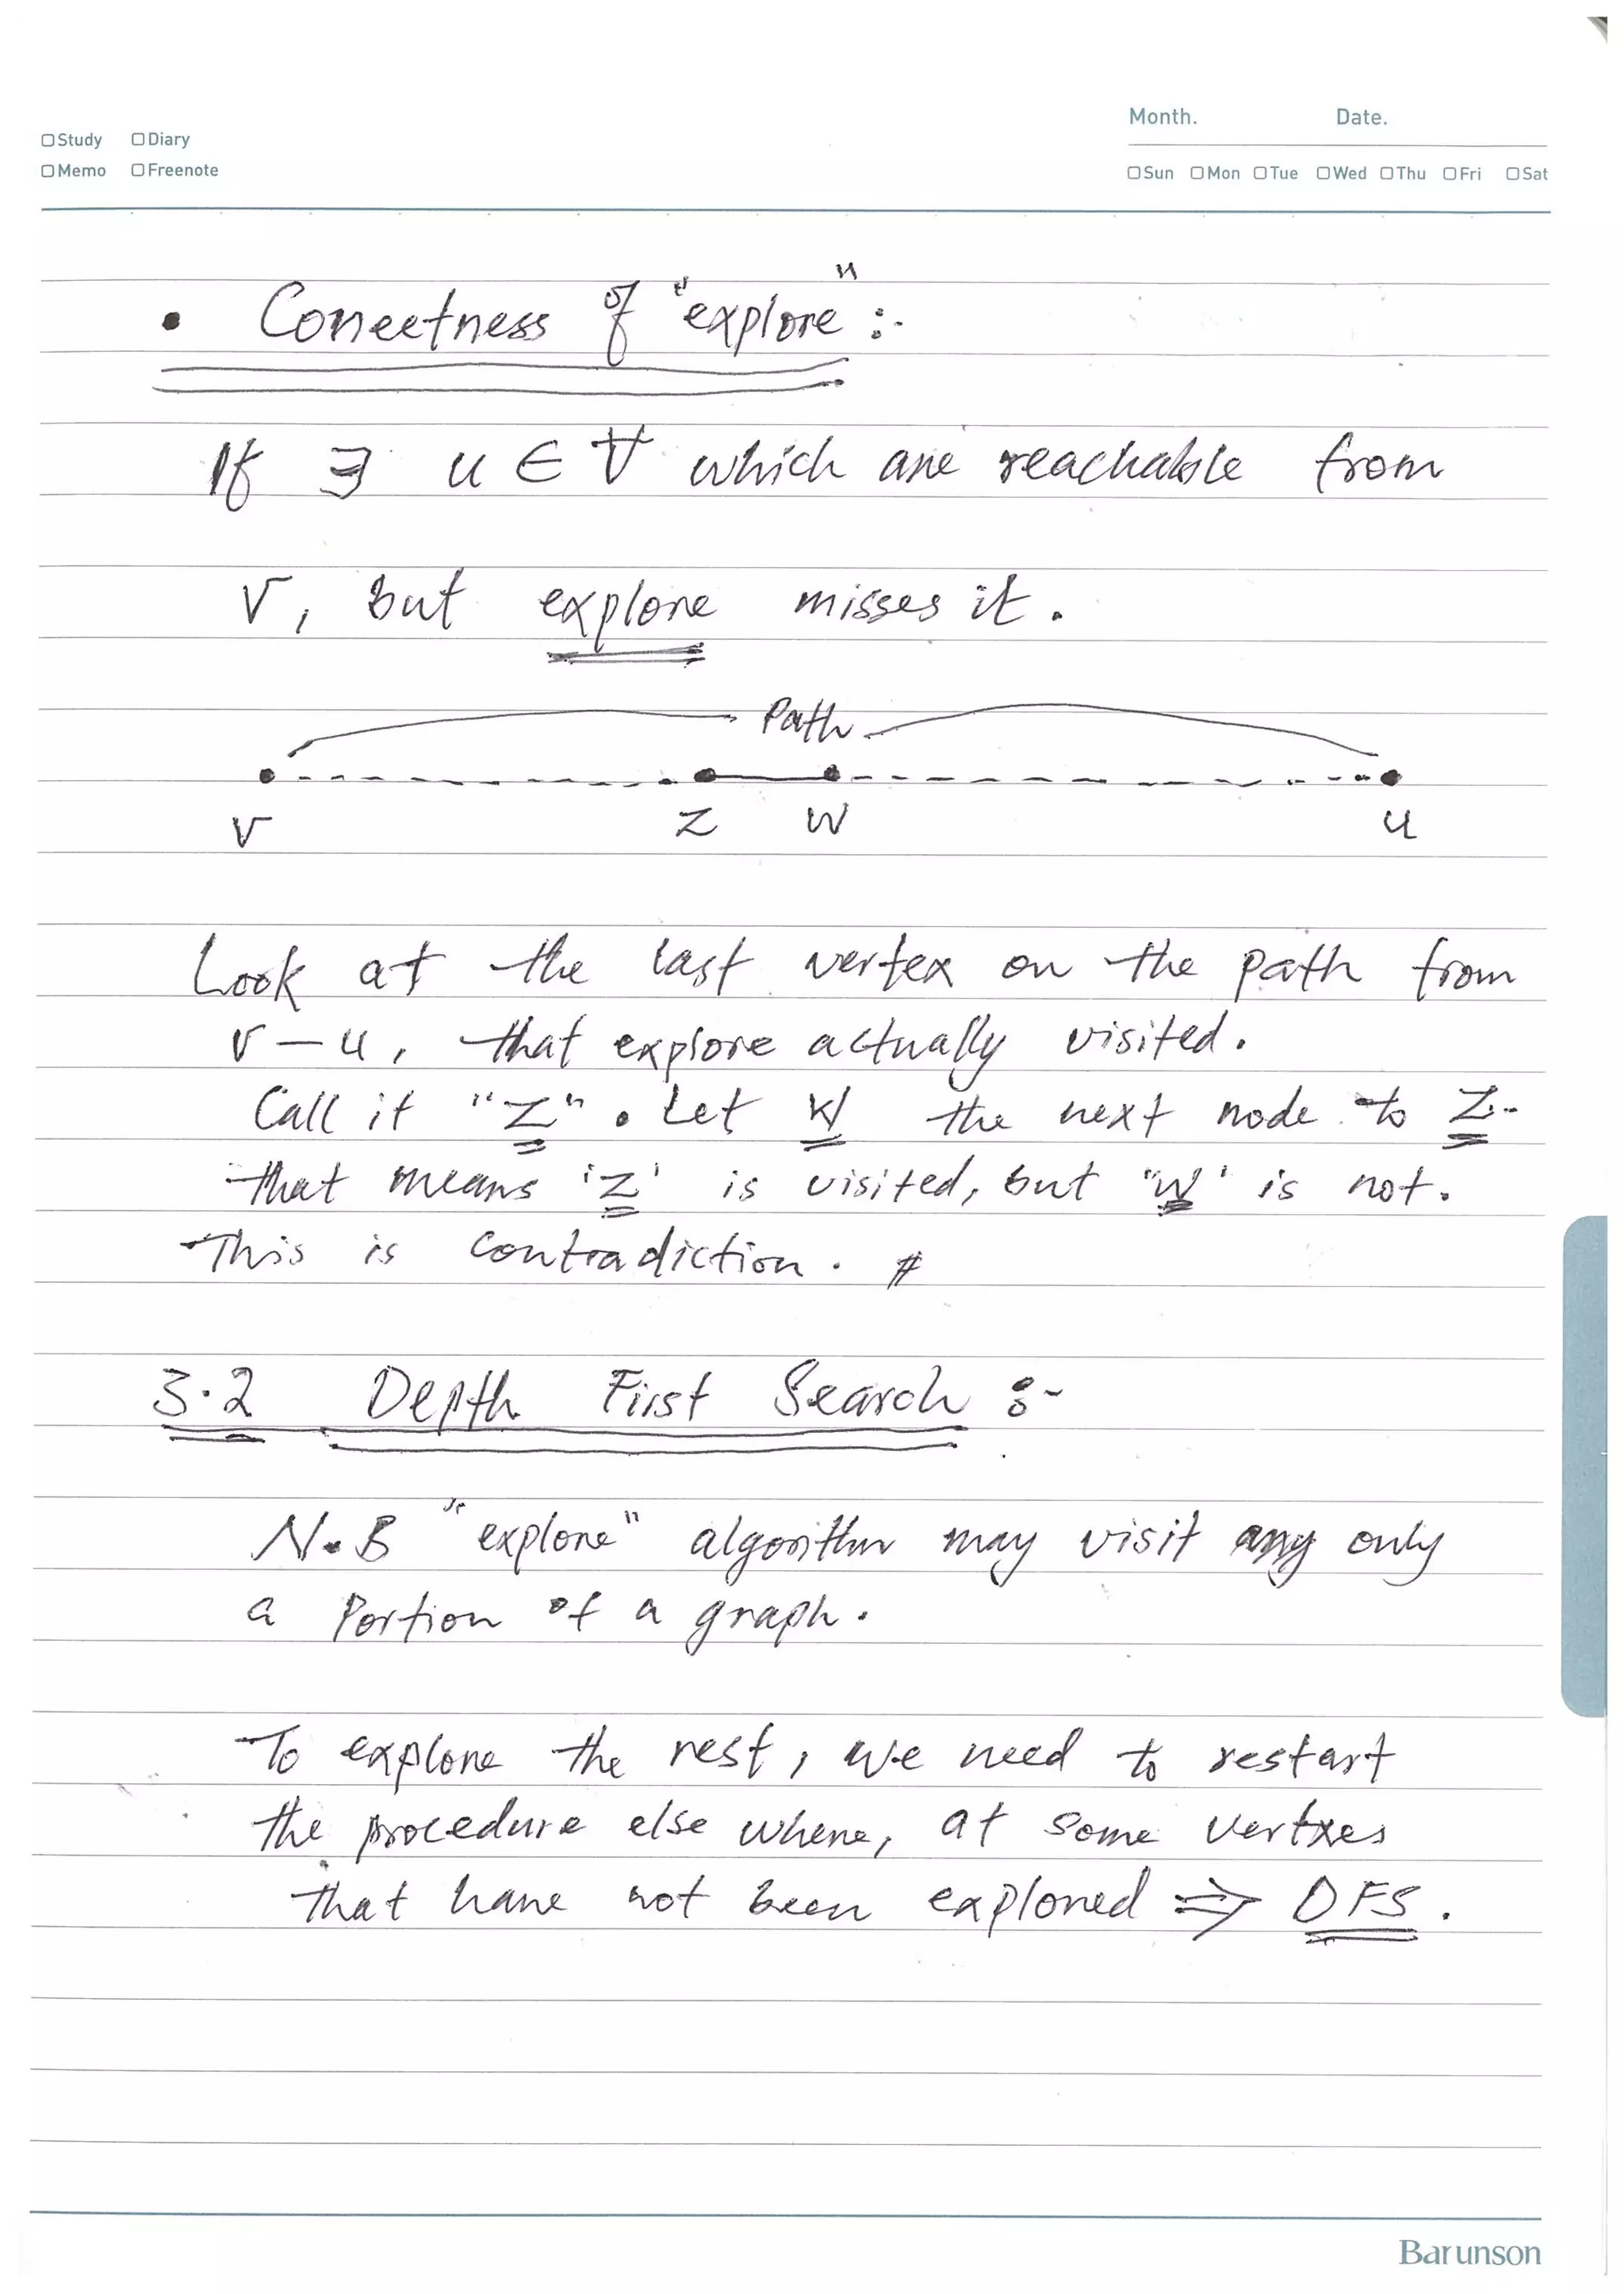 Month. Date.
☐Study ☐Diary
☐Memo ☐Freenote
☐Sun ☐Mon ☐Tue ☐Wed ☐Thu ☐Fri ☐Sat
• Correctness of "explore" :-
If ∃ u ∈ V which are reachable from
V, but explore misses it.
Path
V Z W u
Look at the last vertex on the path from
v – u, that explore actually visited.
Call it "Z". Let W the next node to Z.
that means 'Z' is visited, but "W' is not.
This is contradiction. #
3.2 Depth First Search :-
N.B "explore" algorithm may visit any only
a Portion of a graph.
To explore the rest, we need to restart
the procedure else where, at some vertxes
that have not been explored ⇒ DFS.
Barunson